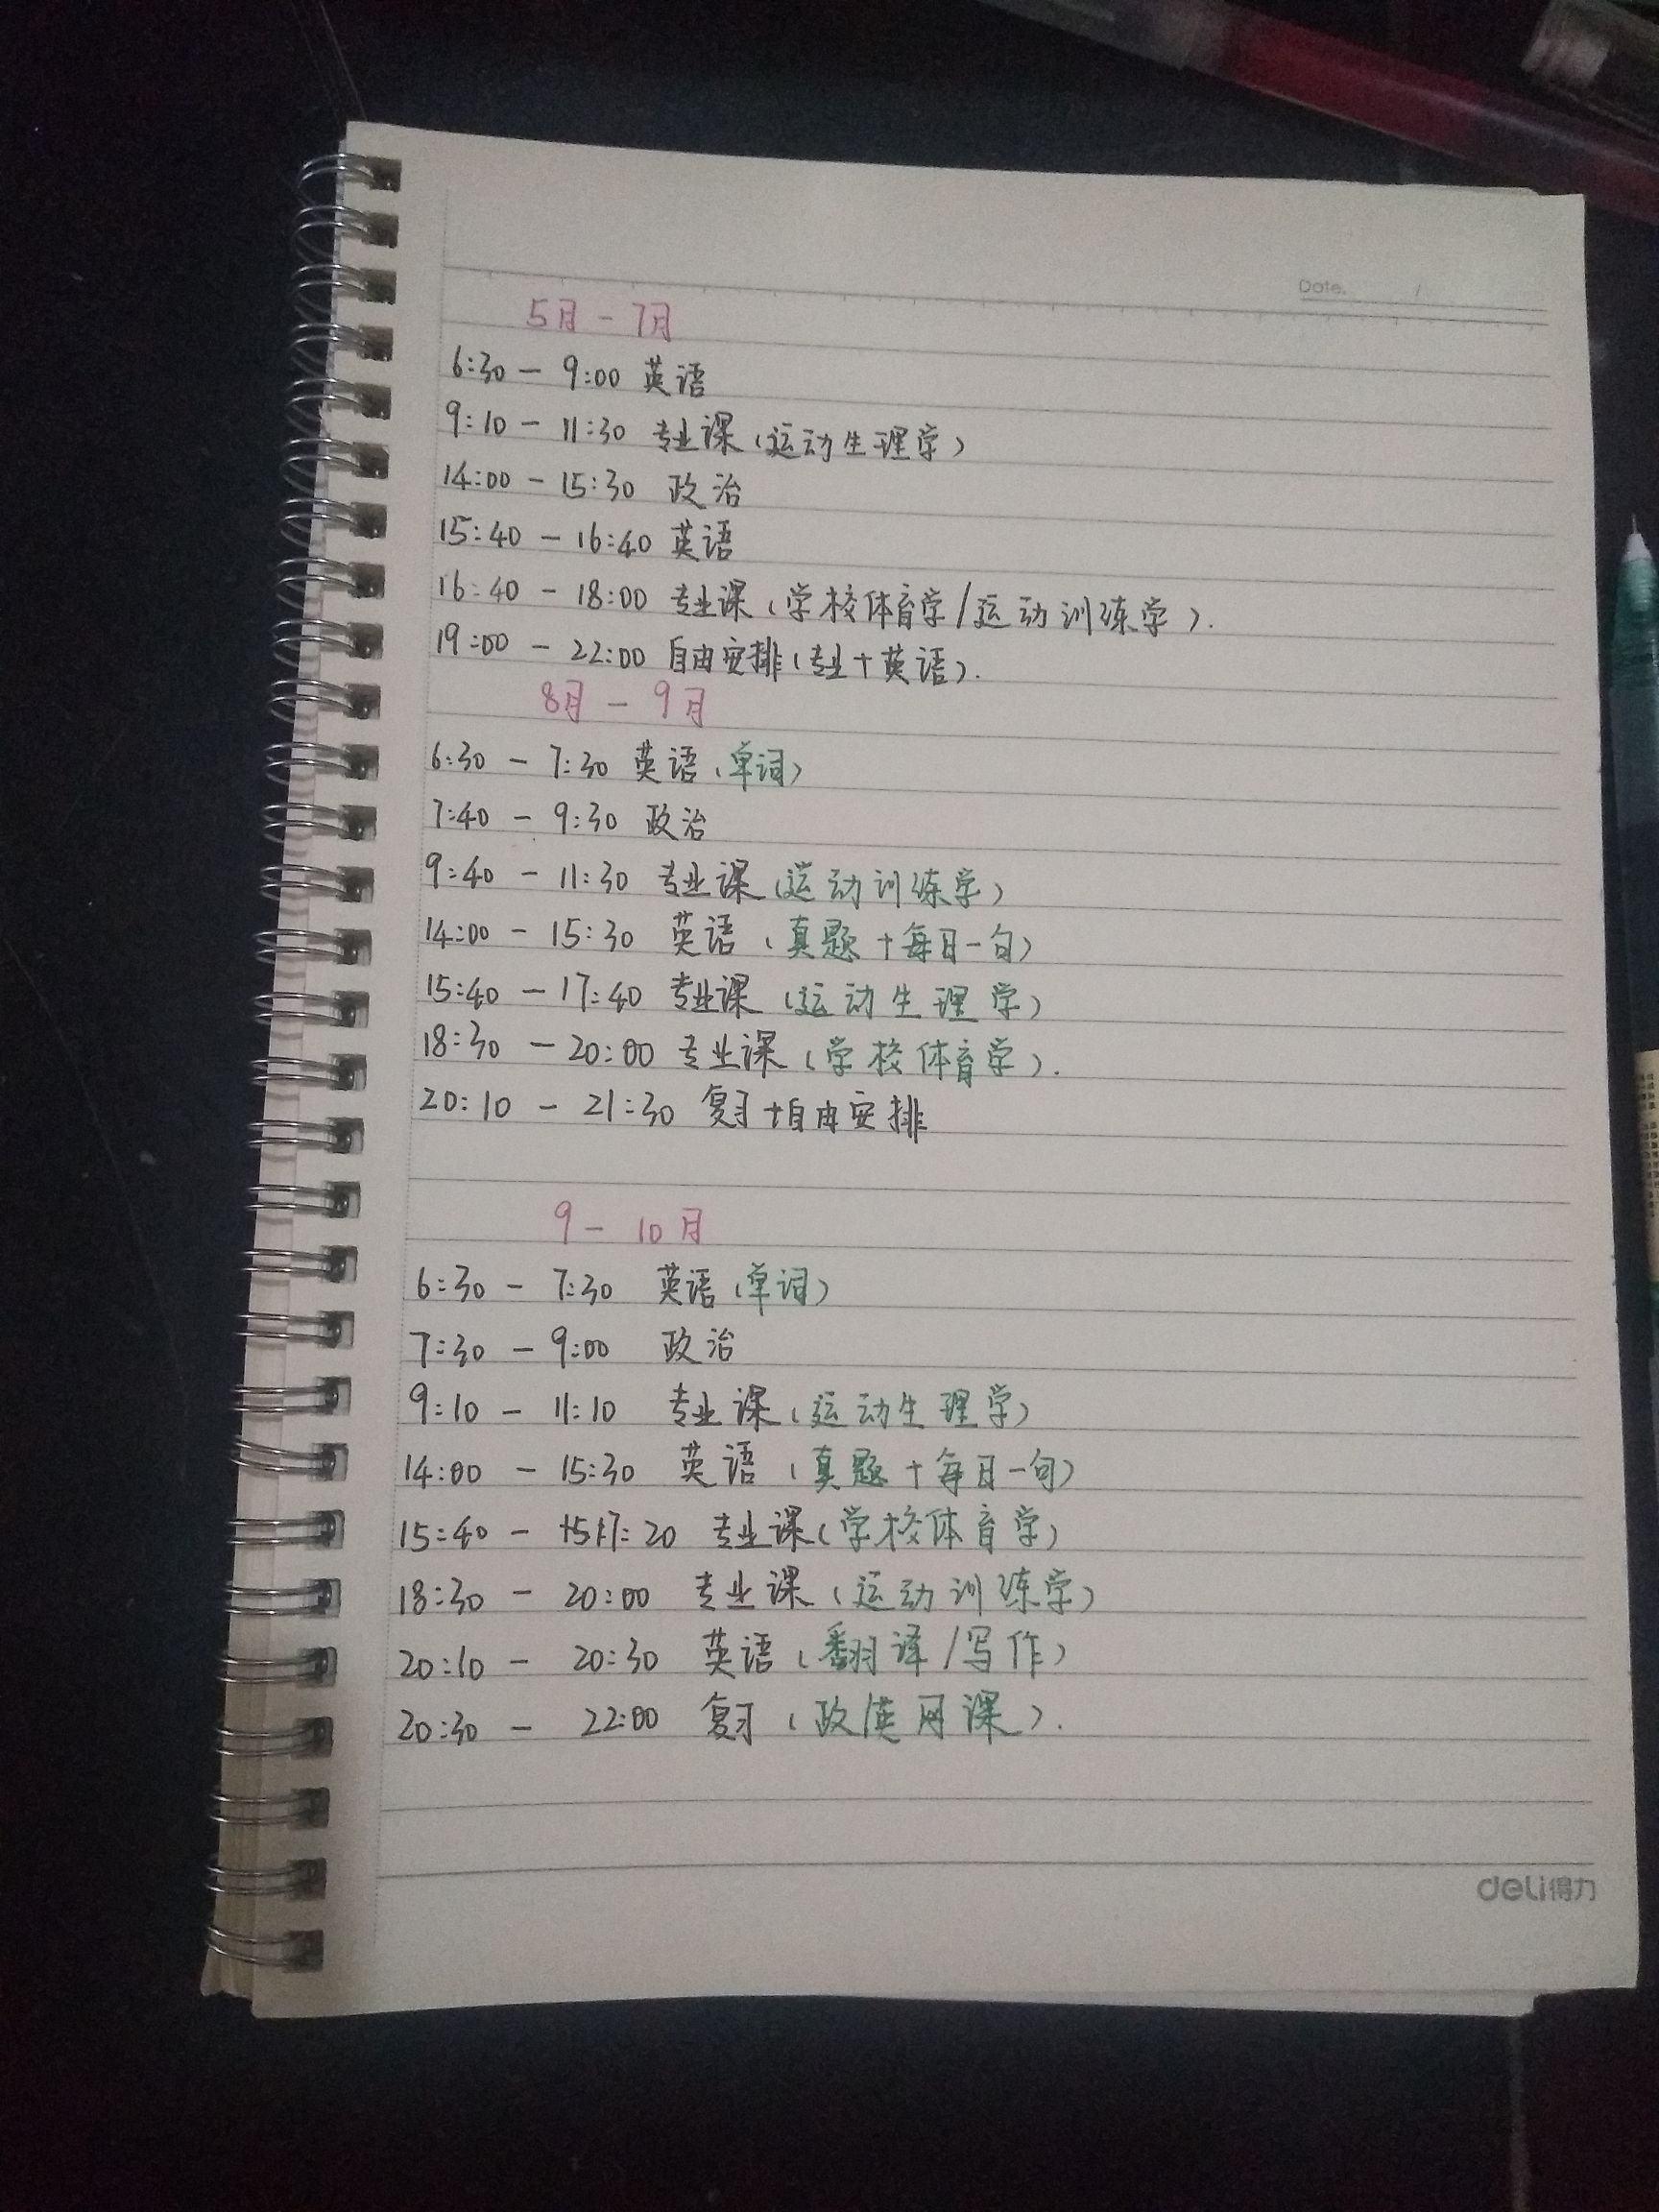 Date. /
5月-7月
6:30-9:00 英语
9:10-11:30 专业课(运动生理学)
14:00-15:30 政治
15:40-16:40 英语
16:40-18:00 专业课(学校体育学/运动训练学).
19:00-22:00 自由安排(专业+英语).
8月-9月
6:30-7:30 英语(单词)
7:40-9:30 政治
9:40-11:30 专业课(运动训练学)
14:00-15:30 英语(真题+每日一句)
15:40-17:40 专业课(运动生理学)
18:30-20:00 专业课(学校体育学).
20:10-21:30 复习+自由安排
9-10月
6:30-7:30 英语(单词)
7:30-9:00 政治
9:10-11:10 专业课(运动生理学)
14:00-15:30 英语(真题+每日一句)
15:40-17:20 专业课(学校体育学)
18:30-20:00 专业课(运动训练学)
20:10-20:30 英语(翻译/写作)
20:30-22:00 复习(政/英网课).
deli得力